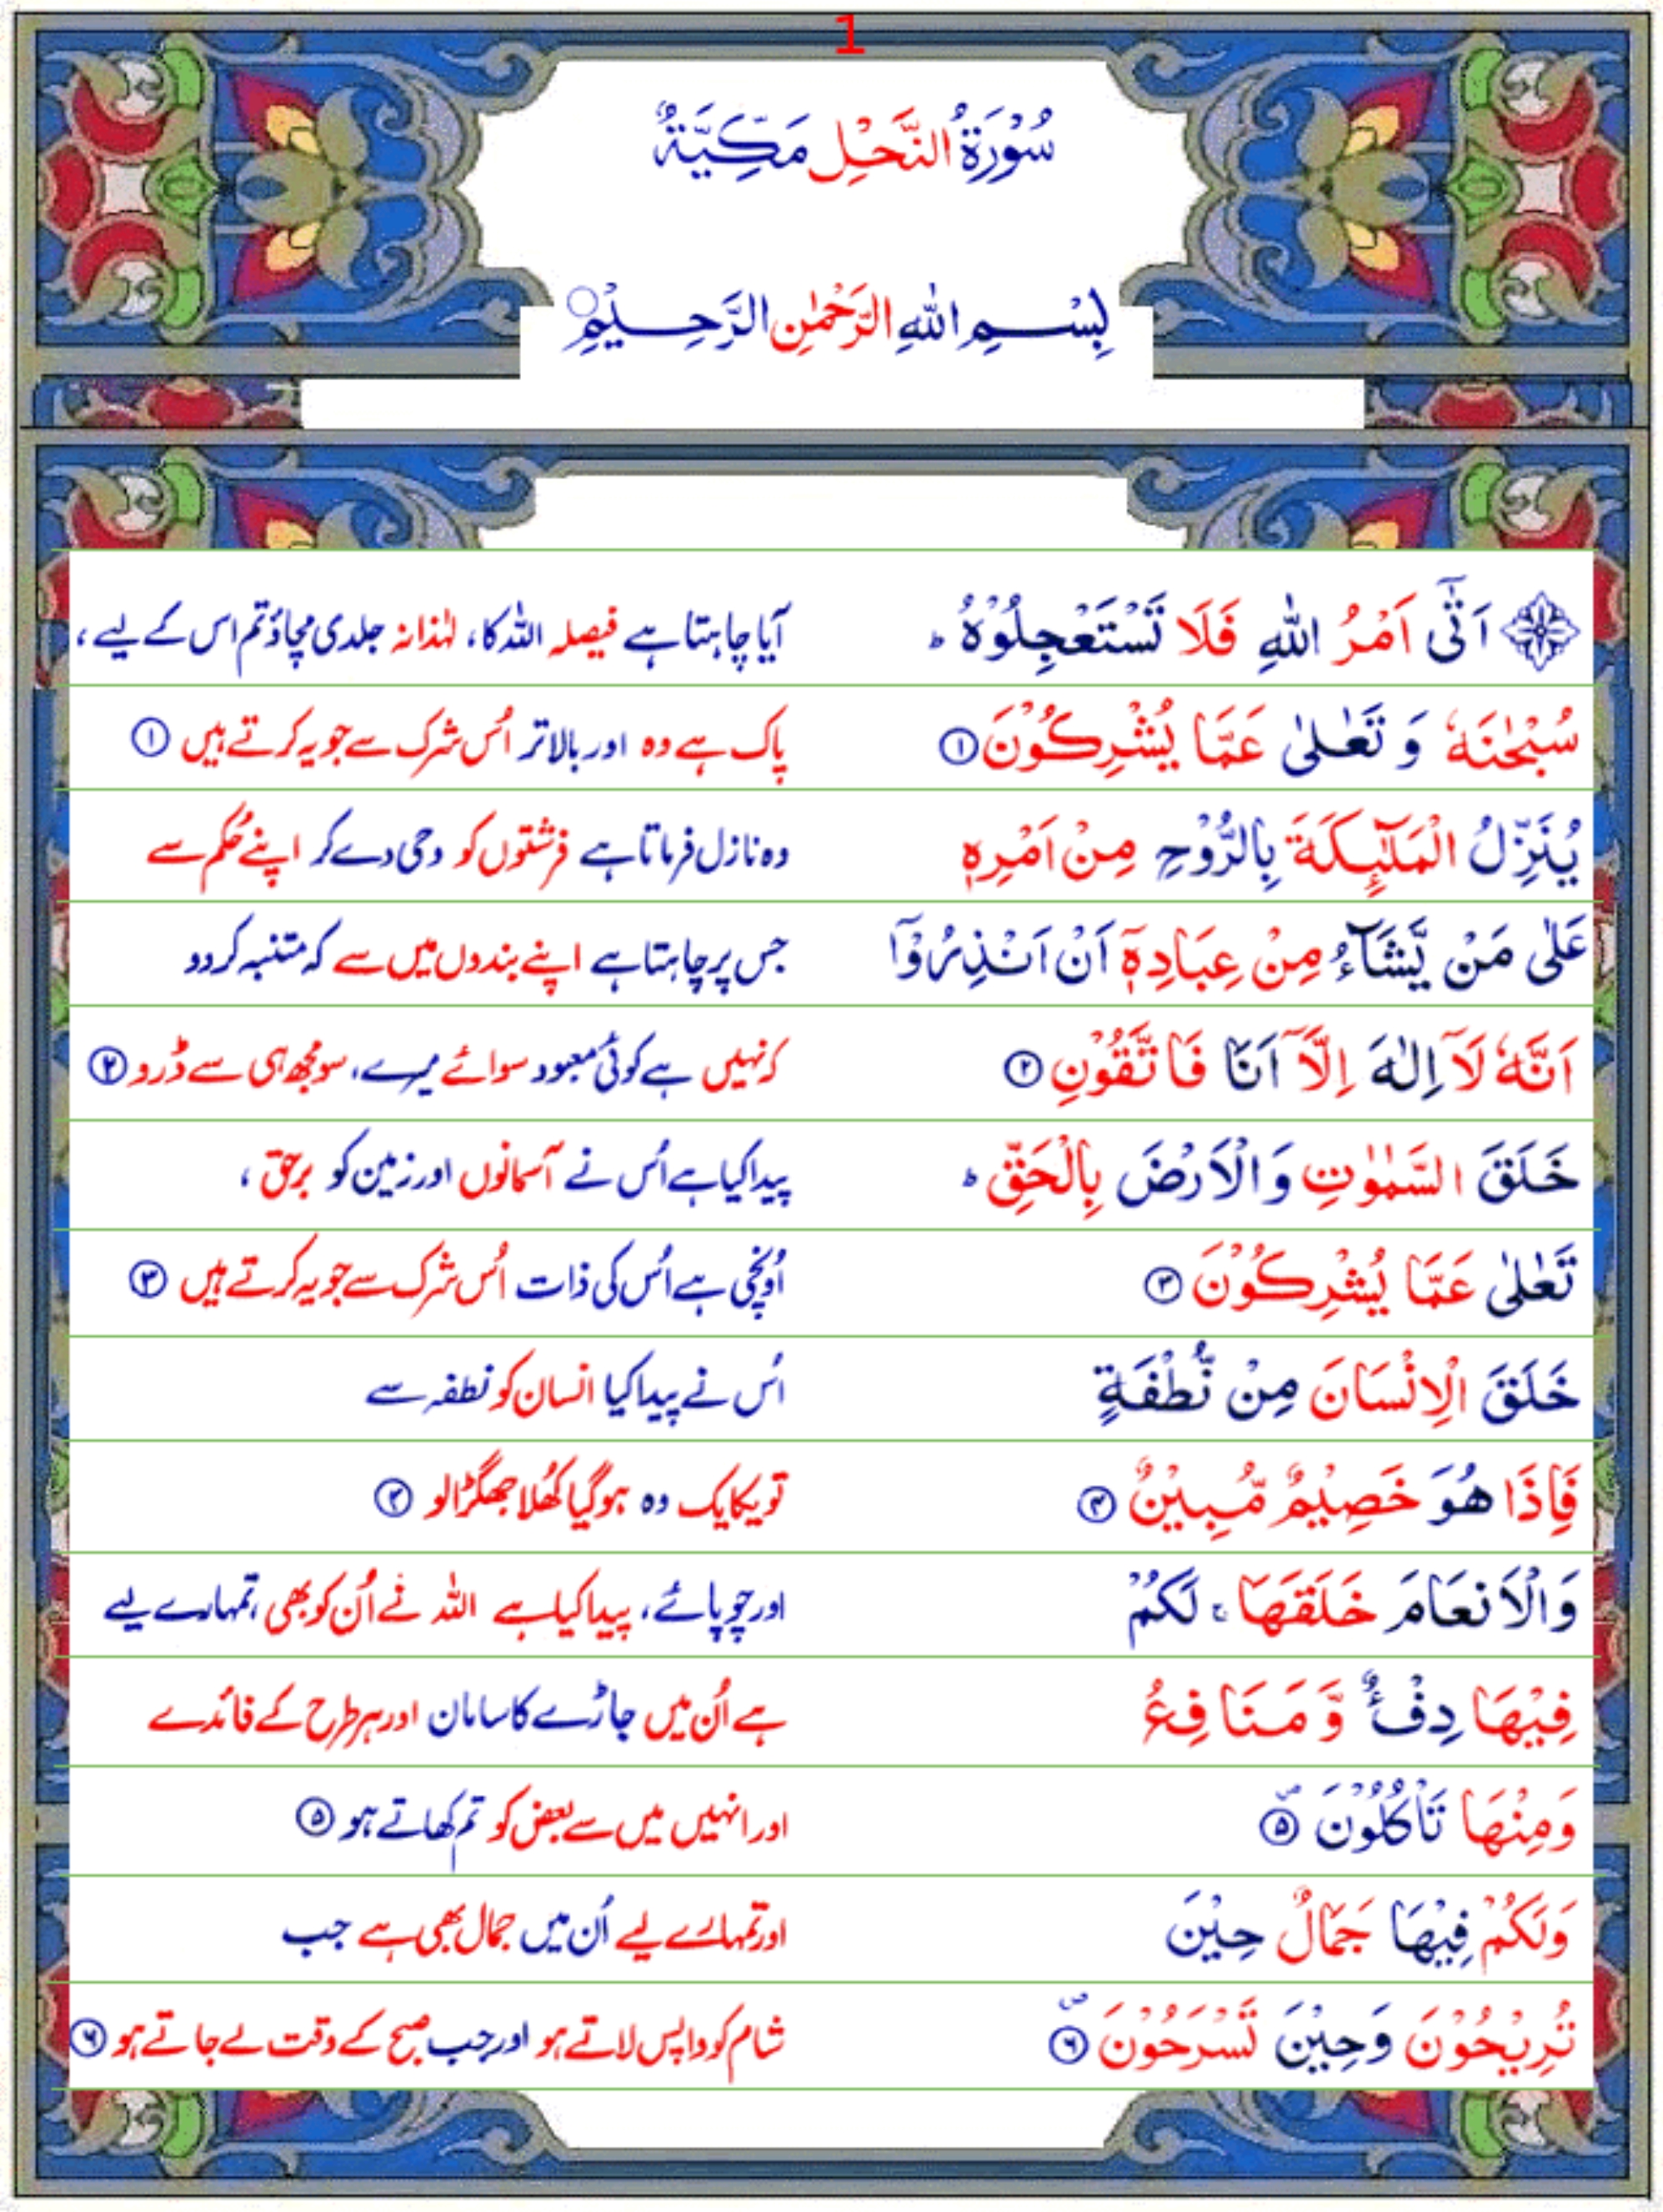 1
سُوْرَةُ النَّحْلِ مَكِّيَّةٌ
بِسْمِ اللّٰهِ الرَّحْمٰنِ الرَّحِيْمِ
اَتٰۤى اَمْرُ اللّٰهِ فَلَا تَسْتَعْجِلُوْهُ ؕ آیا چاہتا ہے فیصلہ اللہ کا، لہٰذا نہ جلدی مچاؤ تم اس کے لیے،
سُبْحٰنَهٗ وَ تَعٰلٰى عَمَّا يُشْرِكُوْنَ ۱ پاک ہے وہ اور بالاتر اُس شرک سے جو یہ کرتے ہیں ۱
يُنَزِّلُ الْمَلٰٓئِكَةَ بِالرُّوْحِ مِنْ اَمْرِهٖ وہ نازل فرماتا ہے فرشتوں کو وحی دے کر اپنے حُکم سے
عَلٰى مَنْ يَّشَآءُ مِنْ عِبَادِهٖۤ اَنْ اَنْذِرُوْۤا جس پر چاہتا ہے اپنے بندوں میں سے کہ متنبہ کر دو
اَنَّهٗ لَاۤ اِلٰهَ اِلَّاۤ اَنَا فَاتَّقُوْنِ ۲ کہ نہیں ہے کوئی معبود سوائے میرے، سو مجھ ہی سے ڈرو ۲
خَلَقَ السَّمٰوٰتِ وَالْاَرْضَ بِالْحَقِّ ؕ پیدا کیا ہے اُس نے آسمانوں اور زمین کو برحق،
تَعٰلٰى عَمَّا يُشْرِكُوْنَ ۳ اُونچی ہے اُس کی ذات اُس شرک سے جو یہ کرتے ہیں ۳
خَلَقَ الْاِنْسَانَ مِنْ نُّطْفَةٍ اُس نے پیدا کیا انسان کو نطفہ سے
فَاِذَا هُوَ خَصِيْمٌ مُّبِيْنٌ ۴ تو یکایک وہ ہو گیا کھُلا جھگڑالو ۴
وَالْاَنْعَامَ خَلَقَهَا ۚ لَكُمْ اور چوپائے، پیدا کیا ہے اللہ نے اُن کو بھی، تمہارے لیے
فِيْهَا دِفْءٌ وَّ مَنَافِعُ ہے اُن میں جاڑے کا سامان اور ہر طرح کے فائدے
وَمِنْهَا تَاْكُلُوْنَ ۵ اور انہیں میں سے بعض کو تم کھاتے ہو ۵
وَلَكُمْ فِيْهَا جَمَالٌ حِيْنَ اور تمہارے لیے اُن میں جمال بھی ہے جب
تُرِيْحُوْنَ وَحِيْنَ تَسْرَحُوْنَ ۶ شام کو واپس لاتے ہو اور جب صبح کے وقت لے جاتے ہو ۶